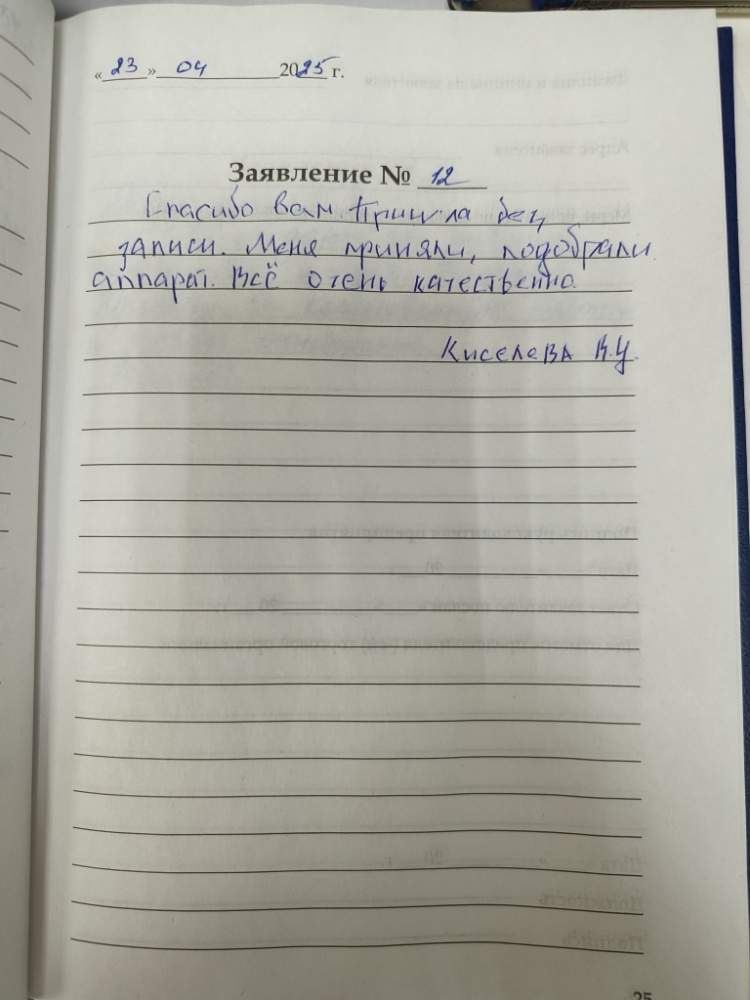 «23» 04 2025 г.
Заявление № 12
Спасибо вам. Пришла без
записи. Меня приняли, подобрали
аппарат. Всё очень качественно.
Киселева В.Ч.
25